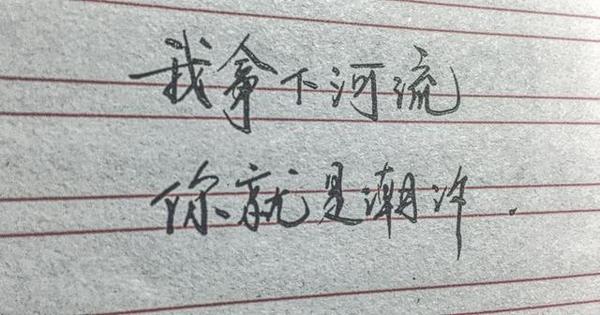 我拿下河流
你就是潮汐.